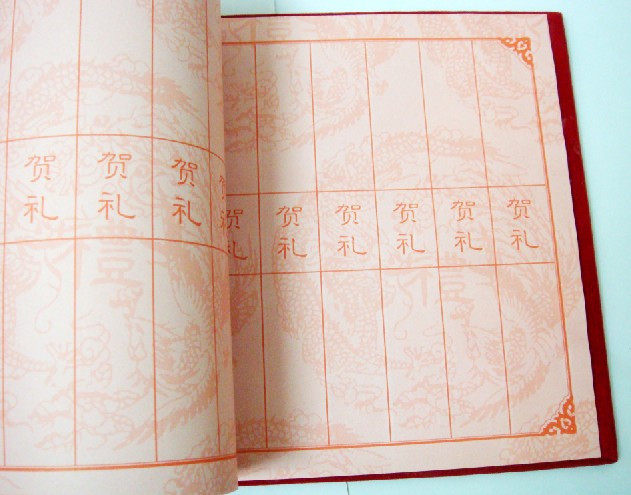 贺礼
贺礼
贺礼
贺礼
贺礼
贺礼
贺礼
贺礼
贺礼